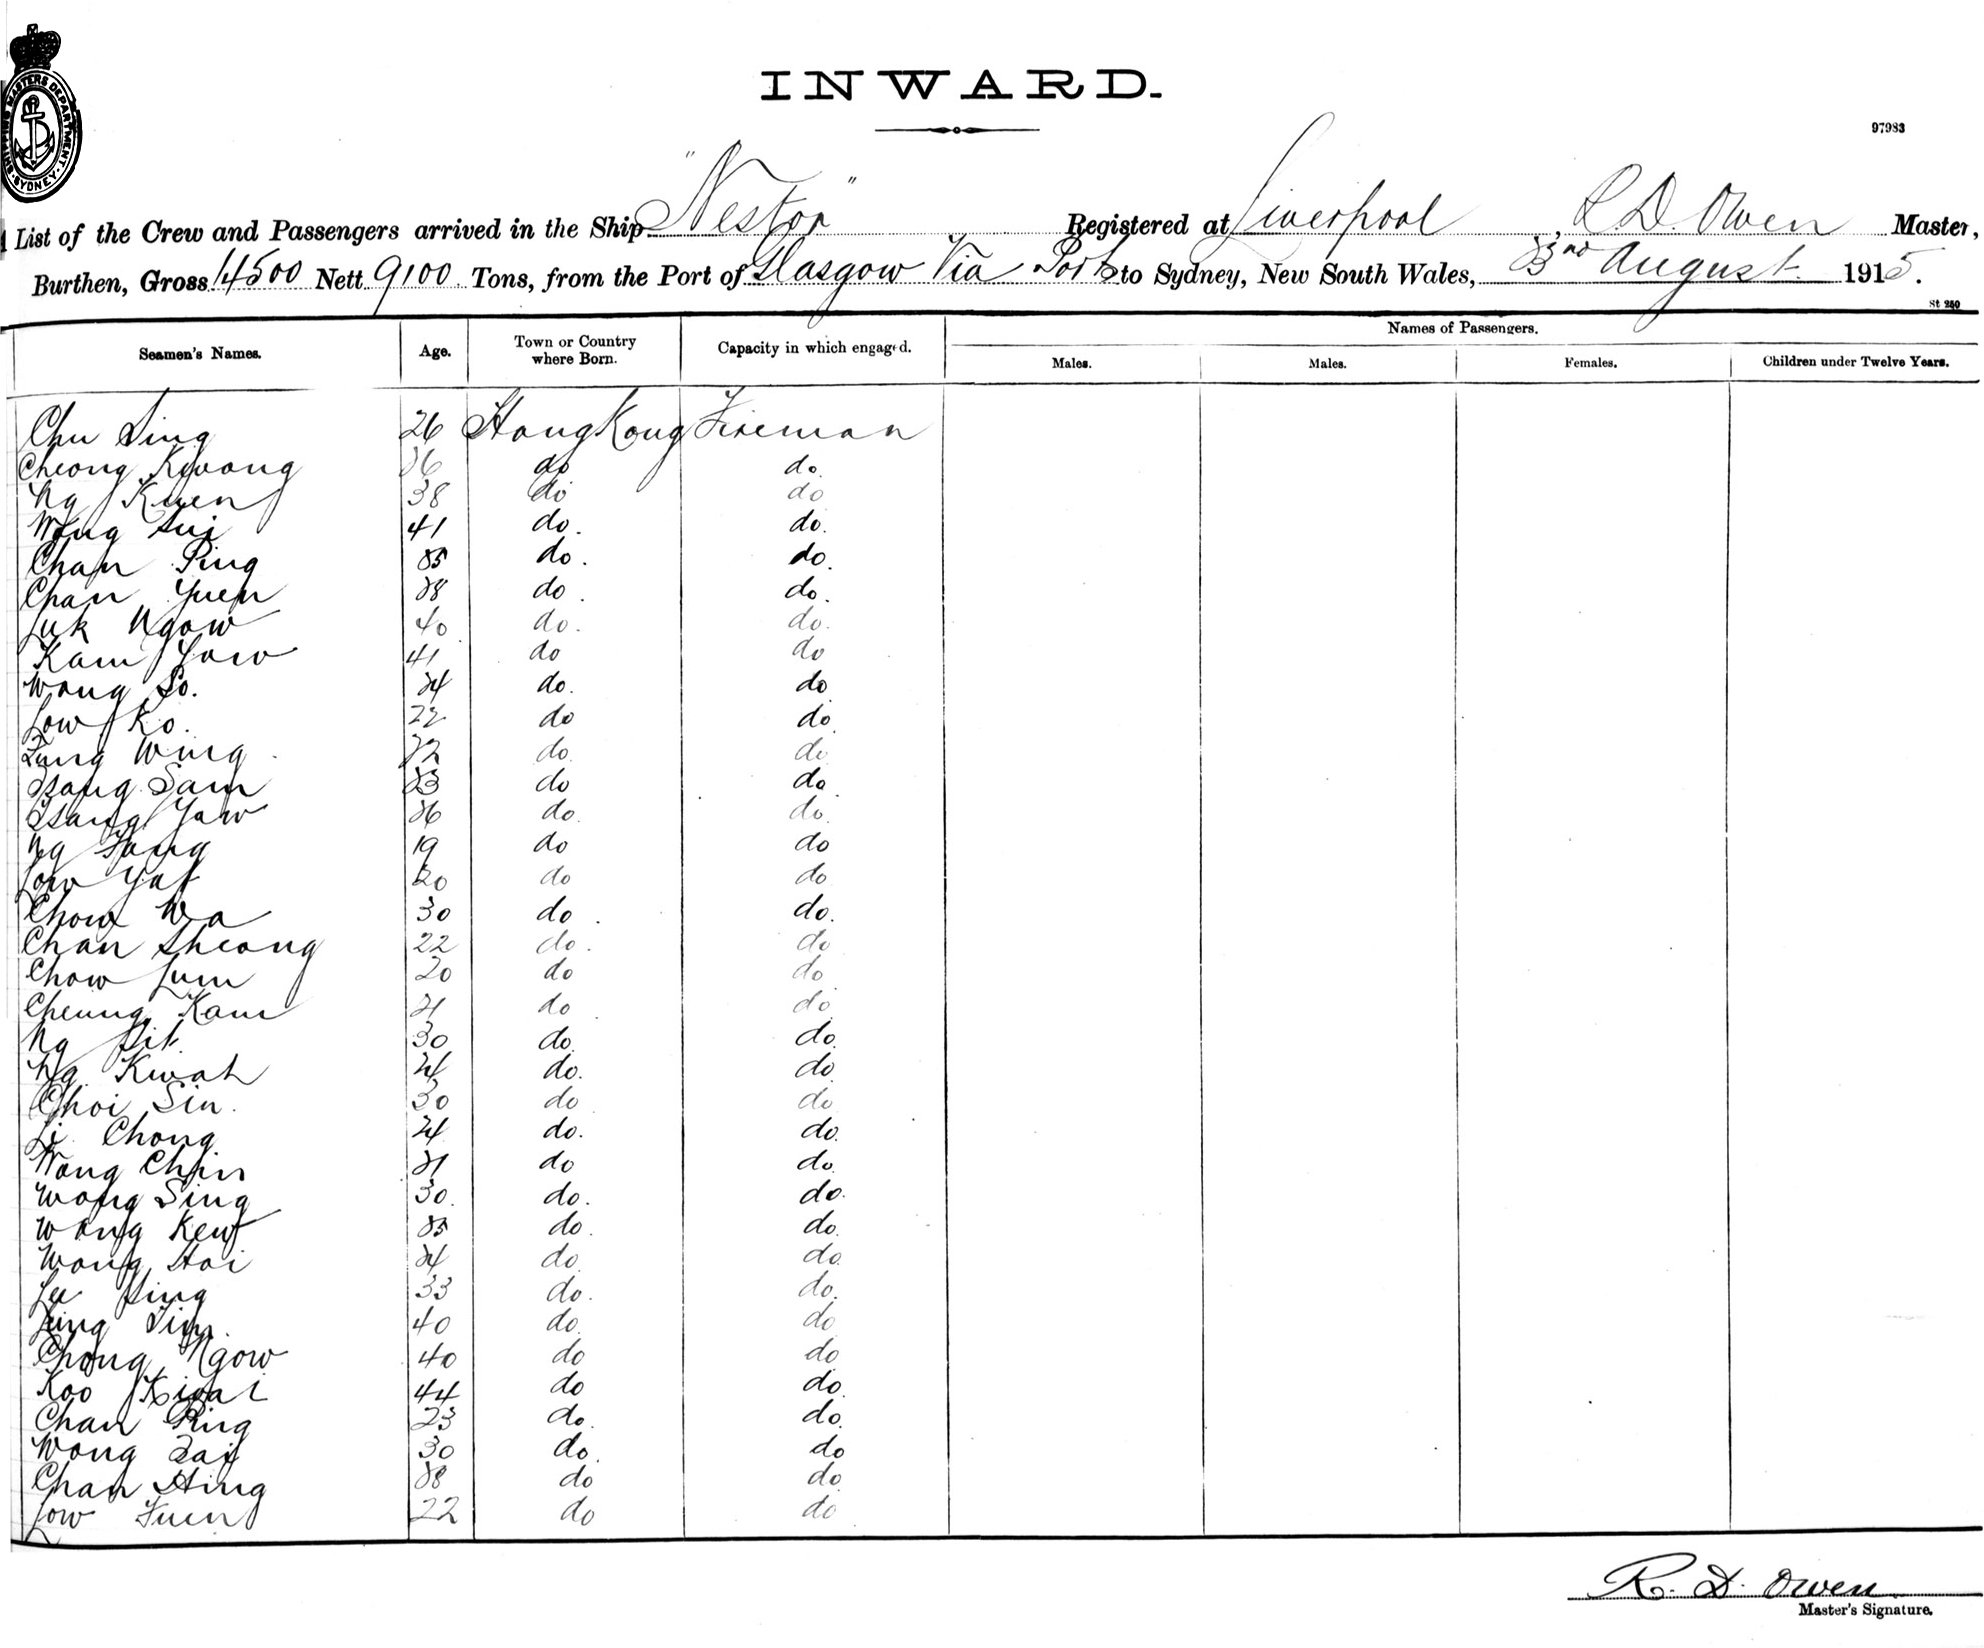 SHIPPING MASTERS DEPARTMENT
SYDNEY
INWARD.
97983
List of the Crew and Passengers arrived in the Ship "Nestor" Registered at Liverpool, R. D. Owen Master,
Burthen, Gross 14500 Nett 9100 Tons, from the Port of Glasgow Via Ports to Sydney, New South Wales, August 1915.
St 250
Names of Passengers.
Seamen's Names. Age. Town or Country where Born. Capacity in which engaged. Males. Males. Females. Children under Twelve Years.
Chu Sing 26 Hong Kong Fireman
Cheong Kwong do do.
Ng Kuen 38 do do
Wong Sui 41 do. do.
Chan Ping do. do.
Chan Yuen do. do.
Luk Ngow 40 do. do.
Kam Yow 41 do do
Wong So. do. do
Low Ko. 22 do do
Lung Wing do do
Tsang Sam do do
Tsang Yow do do
Ng Fong 19 do do
Low Yat 20 do do
Chow Wa 30 do. do.
Chan Sheong 22 do. do
Chow Lum 20 do do
Cheung Kam do do
Ng Sik 30 do. do.
Ng Kwah do. do
Choi Sin. 30 do do
Li Chong do. do.
Wong Chin do do.
Wong Sing 30. do. do.
Wong Kew do. do.
Wong Hoi do do.
Lee Sing 33 do. do.
Ling Tim. 40 do. do
Chong Ngow 40 do do
Koo Kwai 44 do do.
Chan Ping 23 do. do.
Wong 30 do. do
Chan Hing do do.
Low Fuen 22 do do
R. D. Owen
Master's Signature.